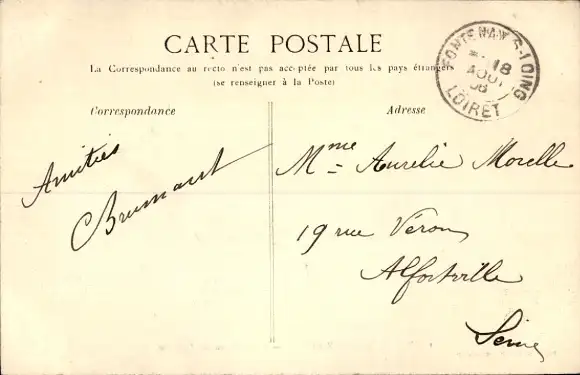 CARTE POSTALE
La Correspondance au recto n'est pas acceptée par tous les pays étrangers
(se renseigner à la Poste)
FONTENAY-S-LOING
18
AOUT
08
LOIRET
Correspondance
Adresse
Amitiés
Mme Aurelie Morelle
19 rue Véron
Alfortville
Seine